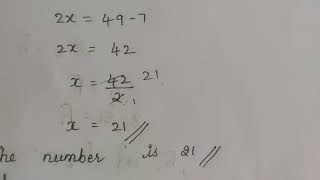 2x = 49-7
2x = 42
x = 42/2 21
1
x = 21 //
he number is 21 //